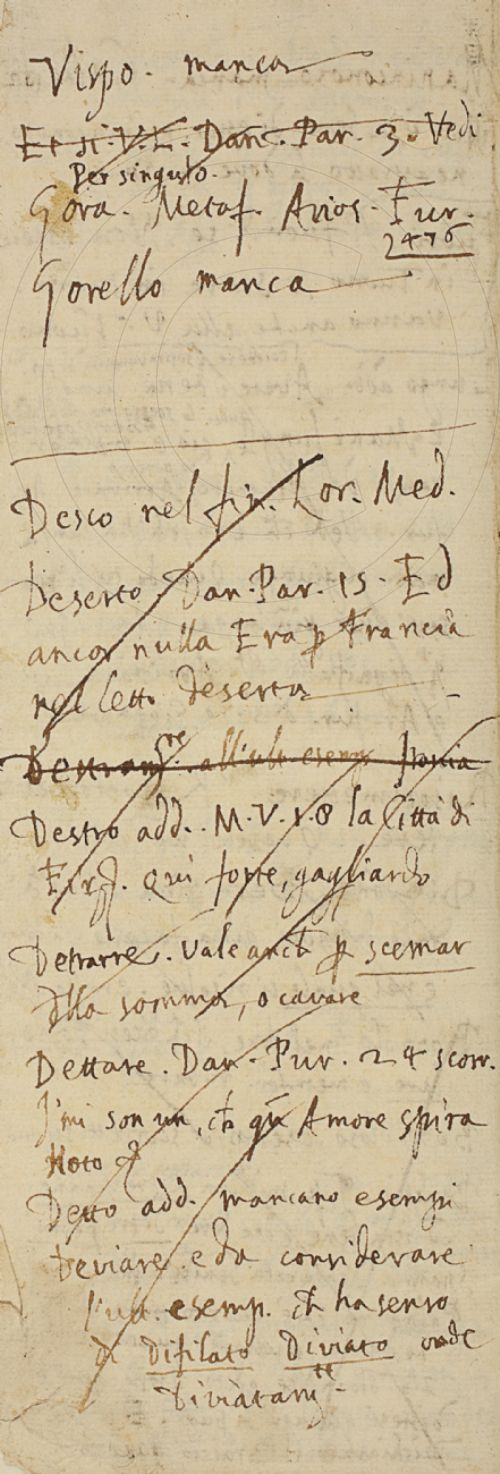 Vispo. manca
Et si. V. L. Dan. Par. 3. Vedi
Per singulo.
Gora. Metaf. Arios. Fur.
2476
Gorello manca
Desco nel fin. Lor. Med.
Deserto. Dan. Par. 15. Ed
ancor nulla Era ꝑ Francia
nel letto deserta
all'ult. esemp. storia
Destro add. M. V. 1. 8 la Città di
Fir. Qui forte, gagliardo
Detrarre. Vale anch ꝑ scemar
dlla somma, o cavare
Dettare. Dan. Pur. 24 scorr.
I' mi son un, ch qn Amore spira
Noto &
Detto add. mancano esempi
Deviare. e da considerare
l'ult. esemp. ch ha senso
di Difilato Diviato onde
Diviatamte